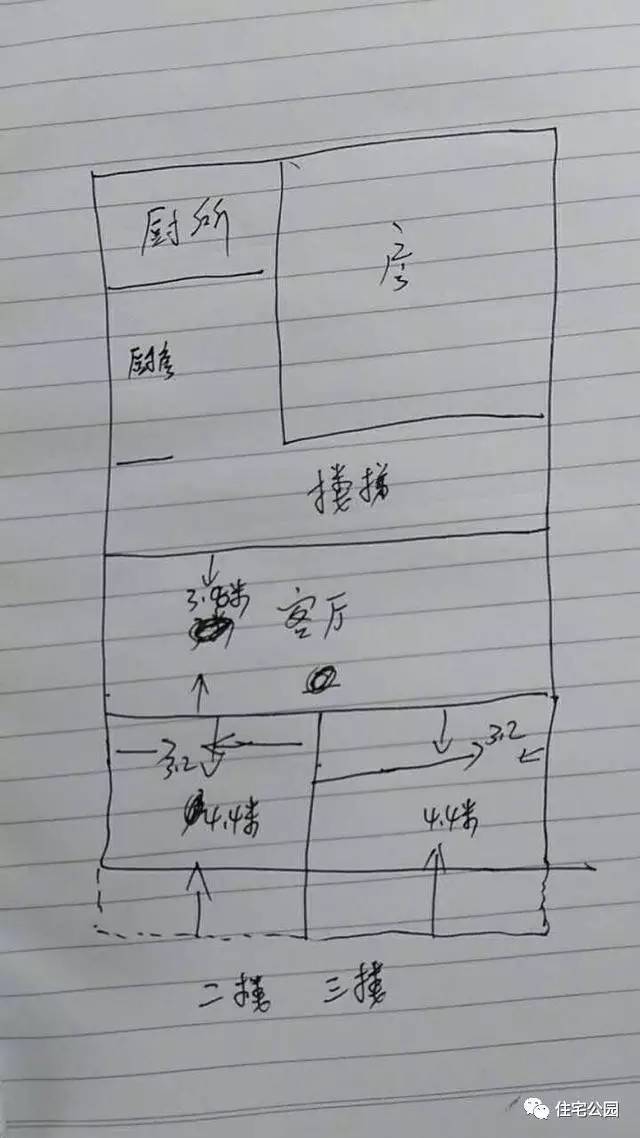 厨所
房
厨房
楼梯
3.98米
客厅
3.2
3.2
4.4米
4.4米
二楼 三楼
住宅公园